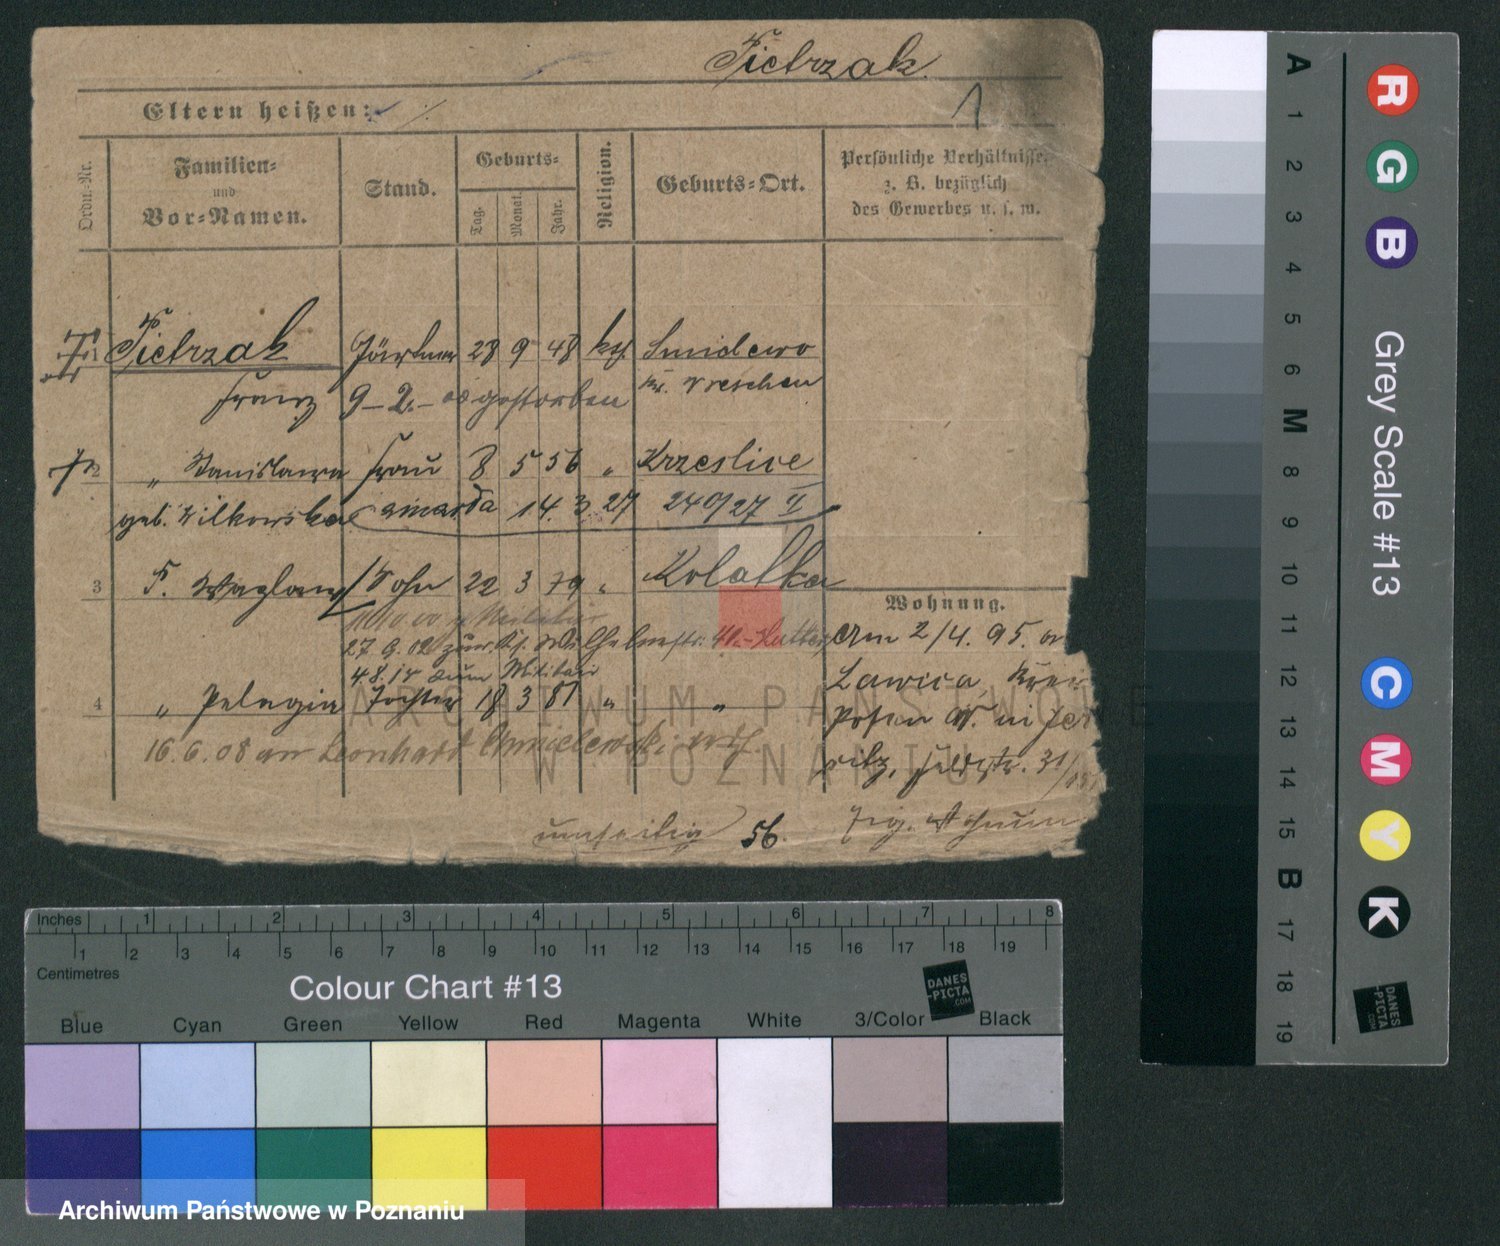 Pietrzak
1
Eltern heißen:
Ordn-Nr.
Familien-
und
Vor-Namen.
Stand.
Geburts-
Tag.
Monat.
Jahr.
Religion.
Geburts-Ort.
Persönliche Verhältnisse
z. B. bezüglich
des Gewerbes u. s. w.
1 Pietrzak Gärtner 28 9 48 kth
Kr. Wreschen
Franz 9-2.- 08 gestorben
2 " Stanislawa Frau 8 5 56 " Krzeslice
geb. Wilkowska 14. 3. 27 240/27 II
3 Waclaw Sohn 22 3 79 " Kolatka
27.9.02 zur Wilhelmstr.
4.8.14 zum Militair
4 " Pelagia Tochter 18 3 81 " "
16.6.08 an Leonhard
Wohnung.
Am 2/4. 95. von
Lawica, Kreis
Posen W. in Jer
sitz, Feldstr. 31/
umseitig 56.
ARCHIWUM PAŃSTWOWE
W POZNANIU
A 1 2 3 4 5 6 M 8 9 10 11 12 13 14 15 B 17 18 19
R G B
Grey Scale #13
C M Y K
DANES
-PICTA
.COM
Inches 1 2 3 4 5 6 7 8
1 2 3 4 5 6 7 8 9 10 11 12 13 14 15 16 17 18 19
Centimetres
Colour Chart #13
DANES
-PICTA
.COM
Blue Cyan Green Yellow Red Magenta White 3/Color Black
Archiwum Państwowe w Poznaniu